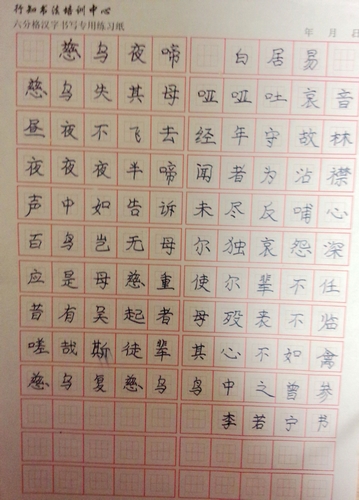 行知书法培训中心
六分格汉字书写专用练习纸 年 月 日
慈乌夜啼 白居易
慈乌失其母 哑哑吐哀音
昼夜不飞去 经年守故林
夜夜夜半啼 闻者为沾襟
声中如告诉 未尽反哺心
百鸟岂无母 尔独哀怨深
应是母慈重 使尔辈不任
昔有吴起者 母殁丧不临
嗟哉斯徒辈 其心不如禽
慈乌复慈乌 鸟中之曾参
李若宁书